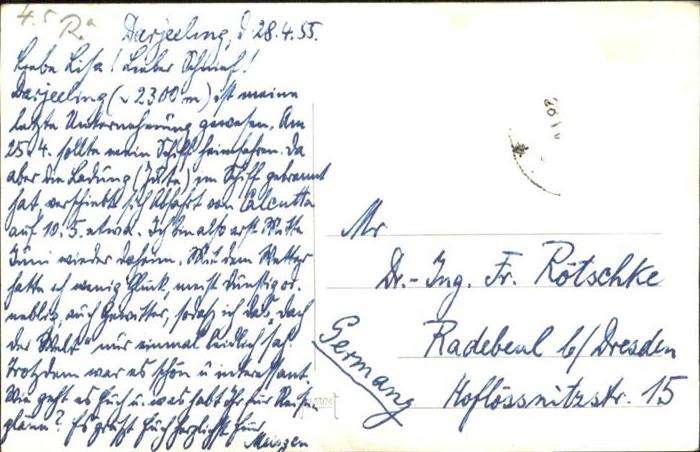 4.5 Ra
Darjeeling, d. 28.4.55.
Liebe Lisa! Lieber Schnief!
Darjeeling (~ 2300 m) ist meine
letzte Unternehmung gewesen. Am
25.4. sollte mein Schiff heimfahren. Da
aber die Ladung (Jute) im Schiff gebrannt
hat, verschiebt sich Abfahrt von Calcutta
auf 10.5. etwa. Ich bin also erst Mitte
Juni wieder daheim. Mit dem Wetter
hatte ich wenig Glück, meist dunstig od.
neblig, auch Gewitter, sodaß ich das „Dach
der Welt“ nur einmal leidlich sah.
Trotzdem war es schön u. interessant.
Wie geht es Euch u. was habt Ihr für Reise-
pläne? Es grüßt Euch herzlichst Euer
Mr
Dr.-Ing. Fr. Rötschke
Radebeul b/Dresden
Hoflössnitzstr. 15
Germany